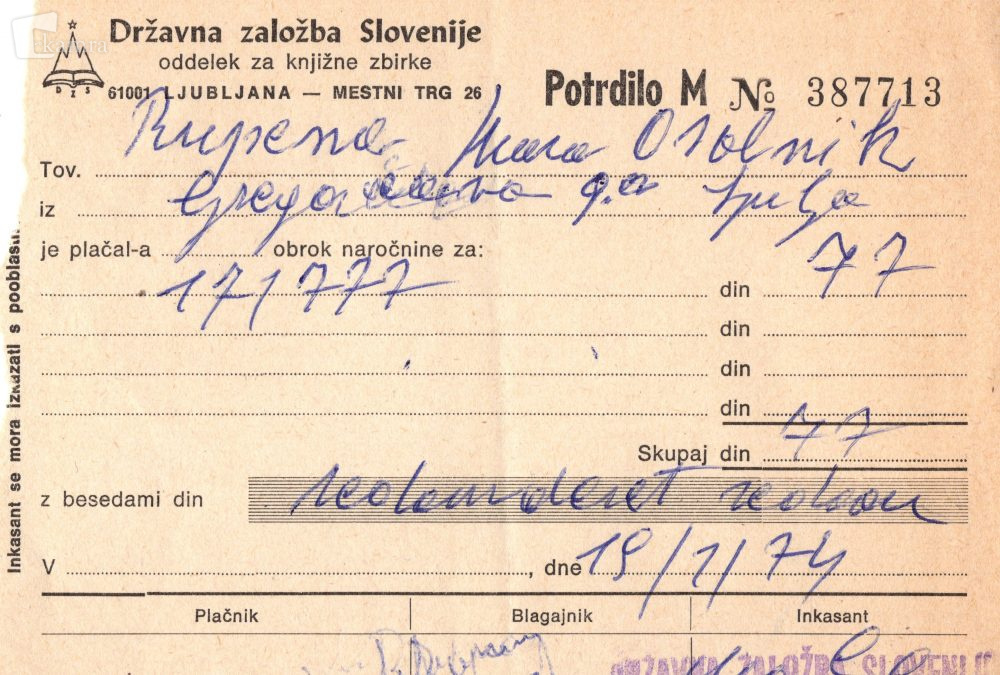 kamra
Državna založba Slovenije
oddelek za knjižne zbirke
DZS
61001 LJUBLJANA — MESTNI TRG 26
Potrdilo M № 387713
Tov. Rupena Mara Osolnik
iz 9.a
je plačal-a obrok naročnine za:
171777 din 77
din
din
din
Skupaj din 77
z besedami din sedemdeset sedem
V , dne 19/1/74
Plačnik Blagajnik Inkasant
DRŽAVNA ZALOŽBA SLOVENIJE
Inkasant se mora izkazati s pooblasti